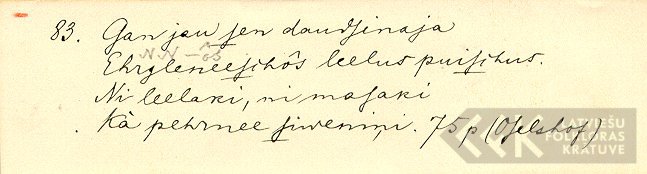 83. Gan jau sen daudsinaja
N. N - ôs
Ehrgleneeschôs leelus puischus.
Ni leelaki, ni masaki
Kà pehrnee siweniņi. 75 p (Oselshof)
LATVIEŠU
FOLKLORAS
KRĀTUVE